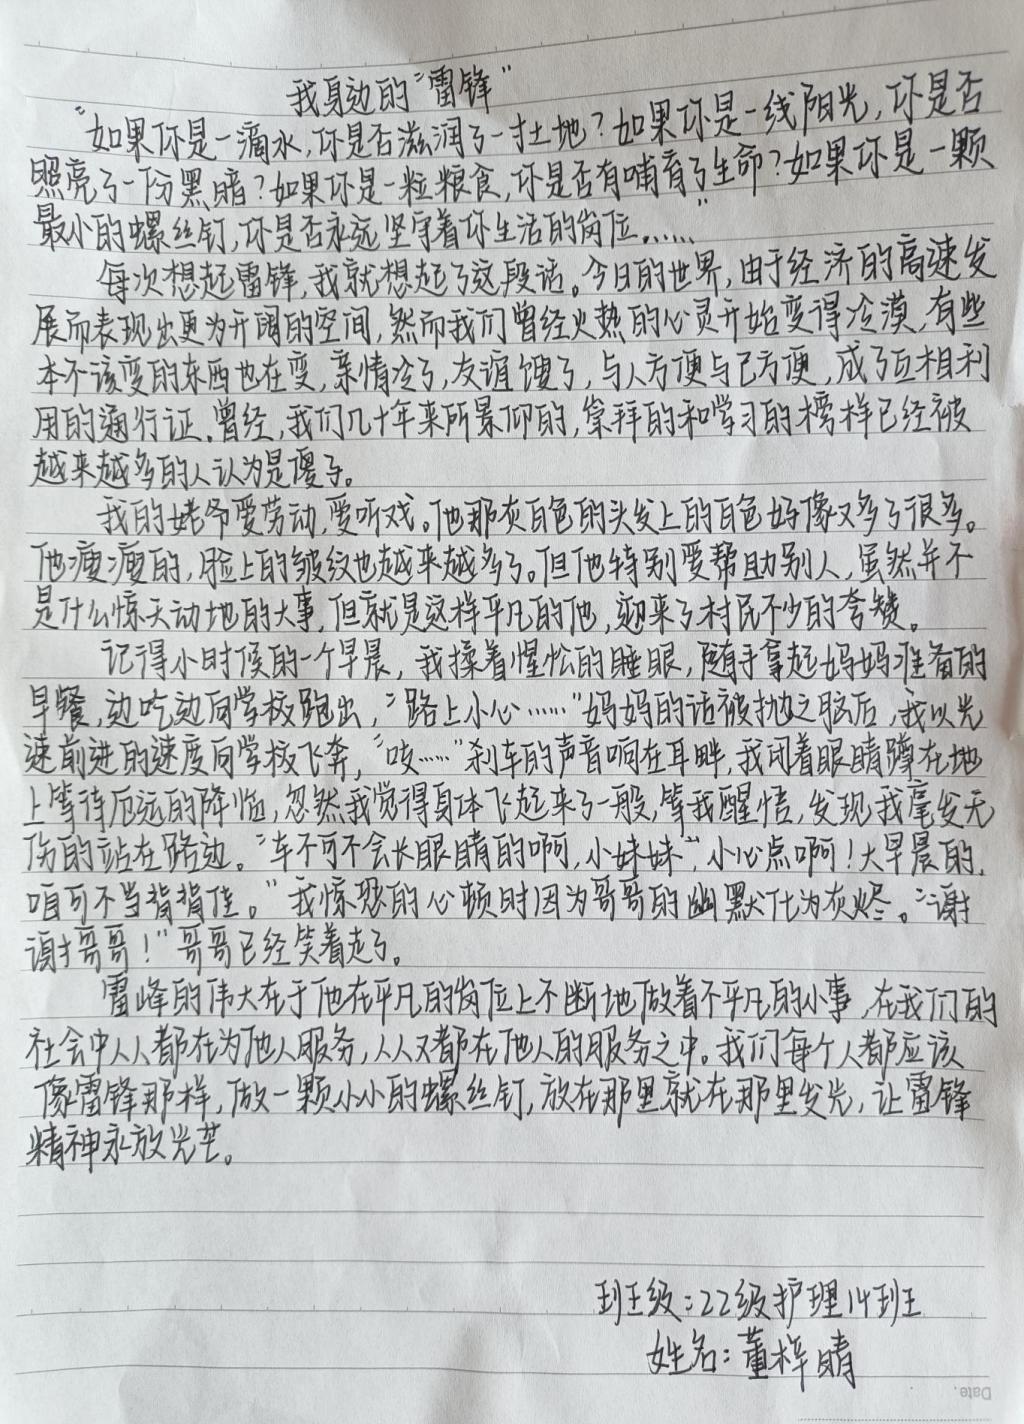 我身边的“雷锋”
“如果你是一滴水,你是否滋润了一寸土地?如果你是一线阳光,你是否
照亮了一份黑暗?如果你是一粒粮食,你是否有哺育了生命?如果你是一颗
最小的螺丝钉,你是否永远坚守着你生活的岗位……”
每次想起雷锋,我就想起了这段话。今日的世界,由于经济的高速发
展而表现出更为开阔的空间,然而我们曾经火热的心灵开始变得冷漠,有些
本不该变的东西也在变,亲情冷了,友谊馊了,与人方便与己方便,成了互相利
用的通行证.曾经,我们几十年来所景仰的,崇拜的和学习的榜样已经被
越来越多的人认为是傻子。
我的姥爷爱劳动,爱听戏。他那灰白色的头发上的白色好像又多了很多。
他瘦瘦的,脸上的皱纹也越来越多了。但他特别爱帮助别人,虽然并不
是什么惊天动地的大事,但就是这样平凡的他,迎来了村民不少的夸赞。
记得小时候的一个早晨,我揉着惺忪的睡眼,随手拿起妈妈准备的
早餐,边吃边向学校跑出,“路上小心……”妈妈的话被抛之脑后,我以光
速前进的速度向学校飞奔,“吱……”刹车的声音响在耳畔,我闭着眼睛蹲在地
上等待厄运的降临,忽然我觉得身体飞起来了一般,等我醒悟,发现我毫发无
伤的站在路边。“车不可不会长眼睛的啊,小妹妹”,小心点啊!大早晨的,
咱可不当背背佳。”我惊恐的心顿时因为哥哥的幽默化为灰烬。“谢
谢哥哥!”哥哥已经笑着走了。
雷峰的伟大在于他在平凡的岗位上不断地做着不平凡的小事,在我们的
社会中人人都在为他人服务,人人又都在他人的服务之中。我们每个人都应该
像雷锋那样,做一颗小小的螺丝钉,放在那里就在那里发光,让雷锋
精神永放光芒。
班级:22级护理14班
姓名:董梓晴
Date.